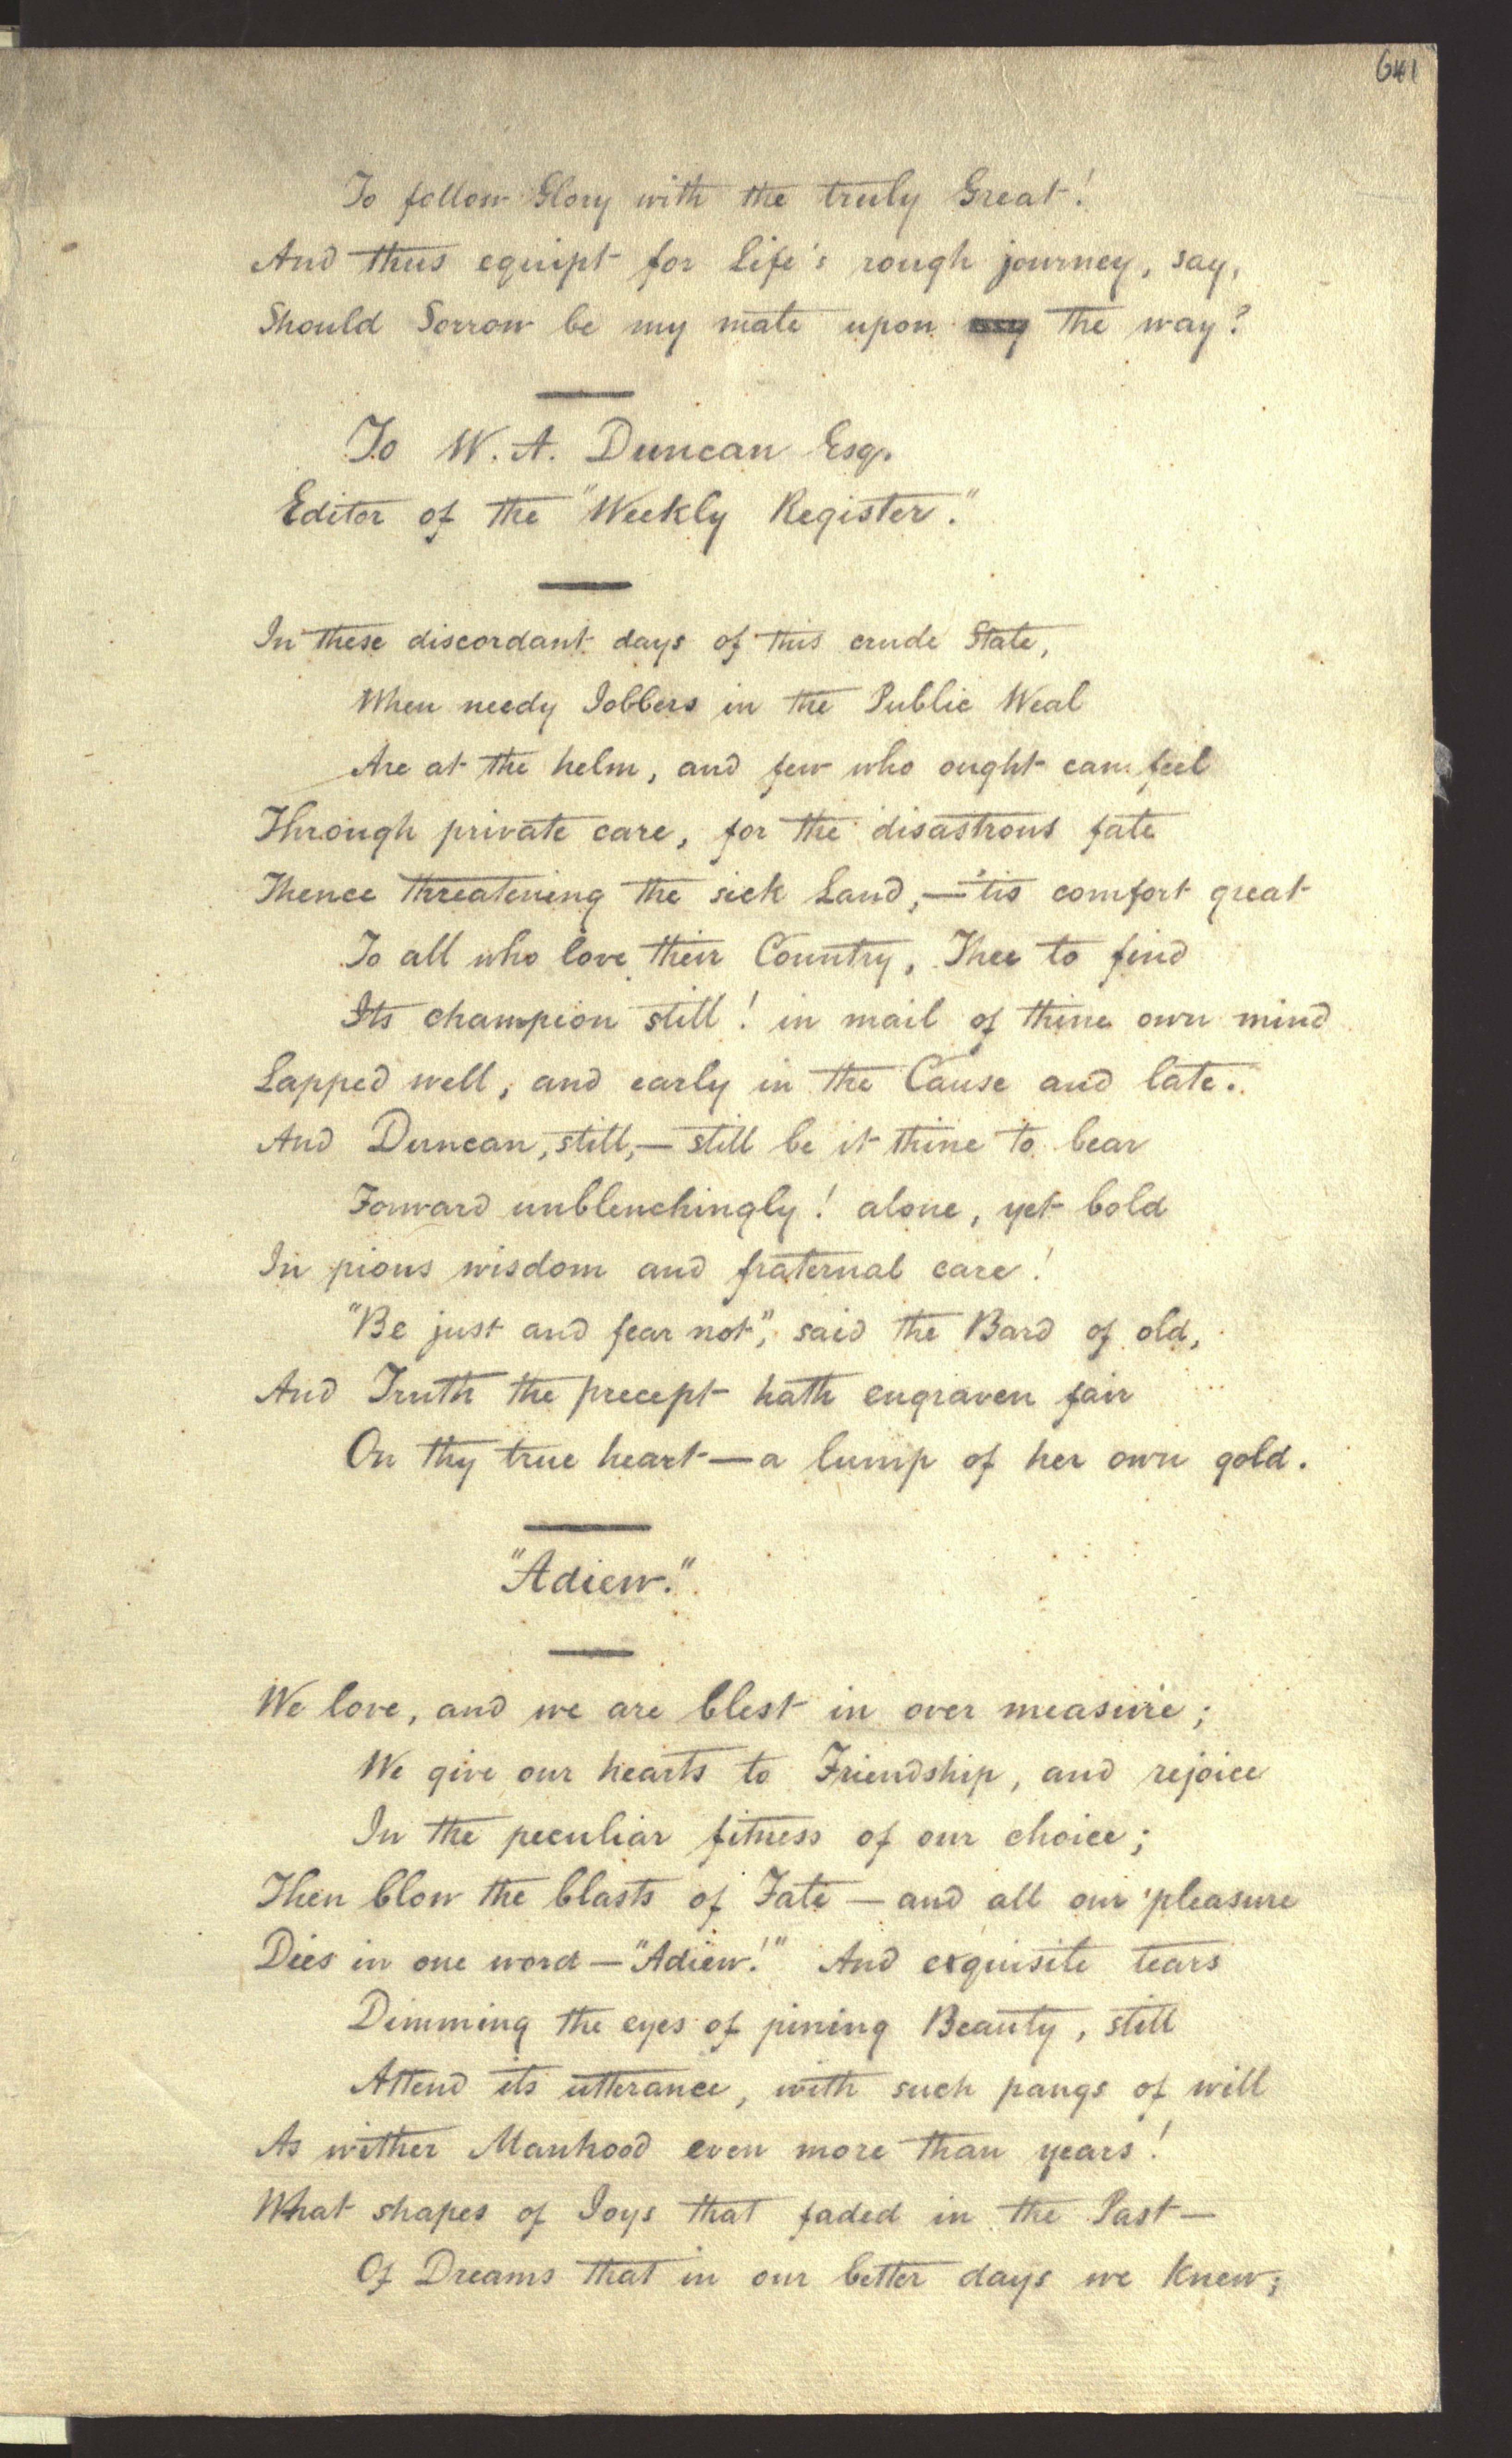 641
To follow Glory with the truly Great!
And thus equipt for Life's rough journey, say,
Should Sorrow be my mate upon the way?
To W. A. Duncan Esq.
Editor of the "Weekly Register."
In these discordant days of this crude State,
When needy Jobbers in the Public Weal
Are at the helm, and few who ought can feel
Through private care, for the disastrous fate
Thence threatening the sick Land,—'tis comfort great
To all who love their Country, Thee to find
Its champion still! in mail of thine own mind
Lapped well, and early in the Cause and late.
And Duncan, still,—still be it thine to bear
Forward unblenchingly! alone, yet bold
In pious wisdom and fraternal care!
"Be just and fear not", said the Bard of old,
And Truth the precept hath engraven fair
On thy true heart—a lump of her own gold.
"Adieu."
We love, and we are blest in over measure;
We give our hearts to Friendship, and rejoice
In the peculiar fitness of our choice;
Then blow the blasts of Fate—and all our pleasure
Dies in one word—"Adieu!" And exquisite tears
Dimming the eyes of pining Beauty, still
Attend its utterance, with such pangs of will
As wither Manhood even more than years!
What shapes of Joys that faded in the Past—
Of Dreams that in our better days we knew;